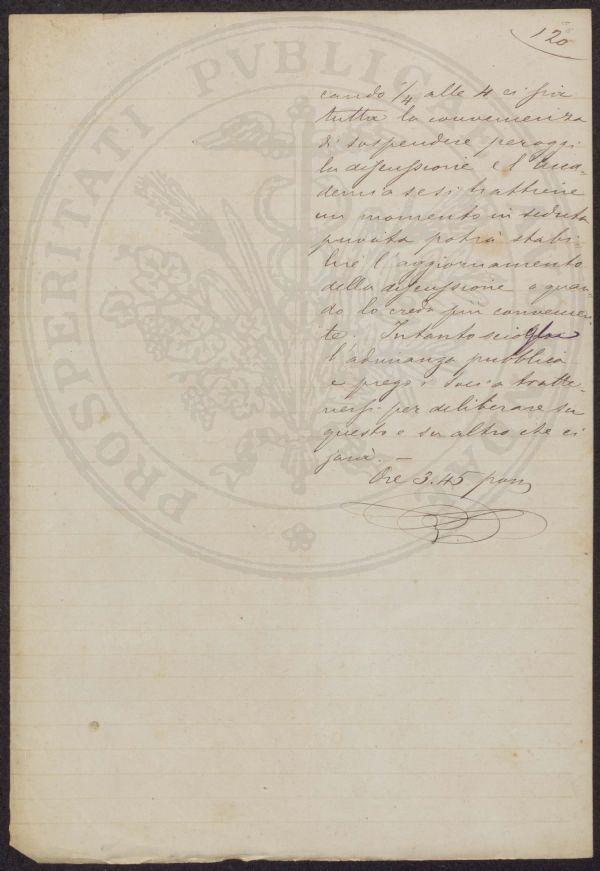 120
cando 1/4 alle 4 ci sia
tutta la convenienza
di sospendere per oggi
la discussione e l'Acca-
demia se si trattiene
un momento in seduta
privata potrà stabi-
lire l'aggiornamento
della discussione a quan-
do lo creda più convenien-
te. Intanto sciolgo
l'adunanza pubblica
e prego i Soci a tratte-
nersi per deliberare su
questo e su altro che ci
sarà. —
Ore 3.45 pom
PROSPERITATI PVBLICAE